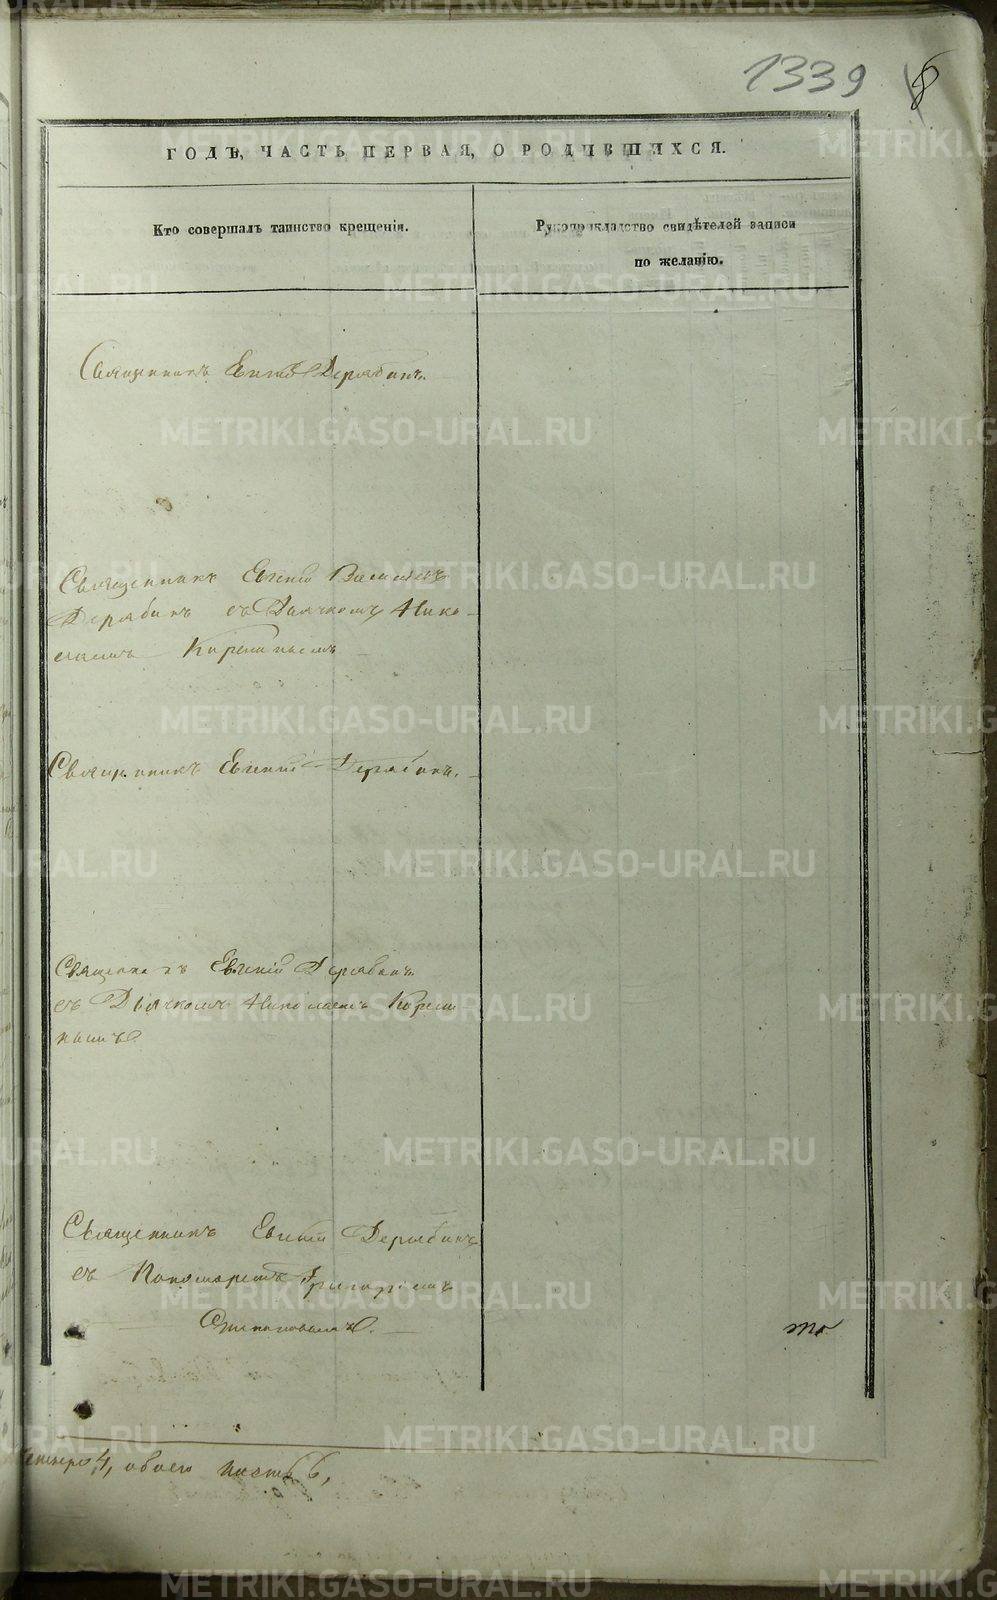 1339 8
ГОДЪ, ЧАСТЬ ПЕРВАЯ, О РОДИВШИХСЯ.
Кто совершалъ таинство крещенія.
Рукоприкладство свидѣтелей записи
по желанію.
Священникъ Евгній Дерябинъ.
Священникъ Евгеній
Дерябинъ съ Дьячкомъ Нико-
лаемъ
Священникъ Евгеній Дерябинъ.
Священникъ Евгеній Дерябинъ
съ Дьячкомъ Николаемъ
Священникъ Евгеній Дерябинъ
съ Пономаремъ Григоріемъ
4, обоего 6,
METRIKI.GASO-URAL.RU